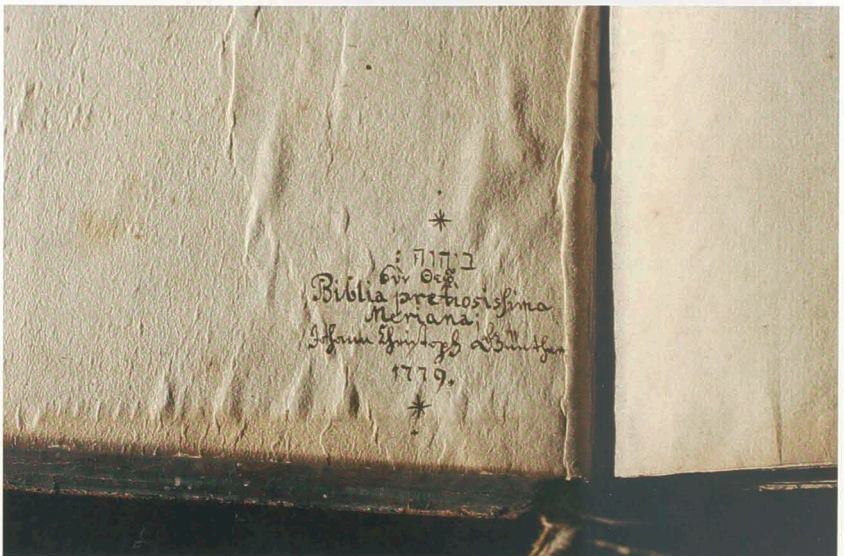 ביהוה :
σὺν Θεῷ
Biblia pretiosissima
Meriana
Johann Christoph Günther
1779.